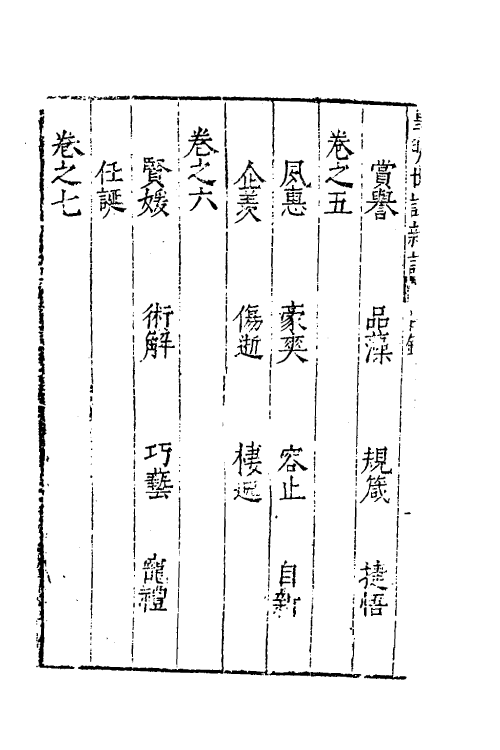 賞譽 品藻 規箴 捷悟
卷之五
夙惠 豪爽 容止 自新
企羨 傷逝 棲逸
卷之六
賢媛 術解 巧藝 寵禮
任誕
卷之七